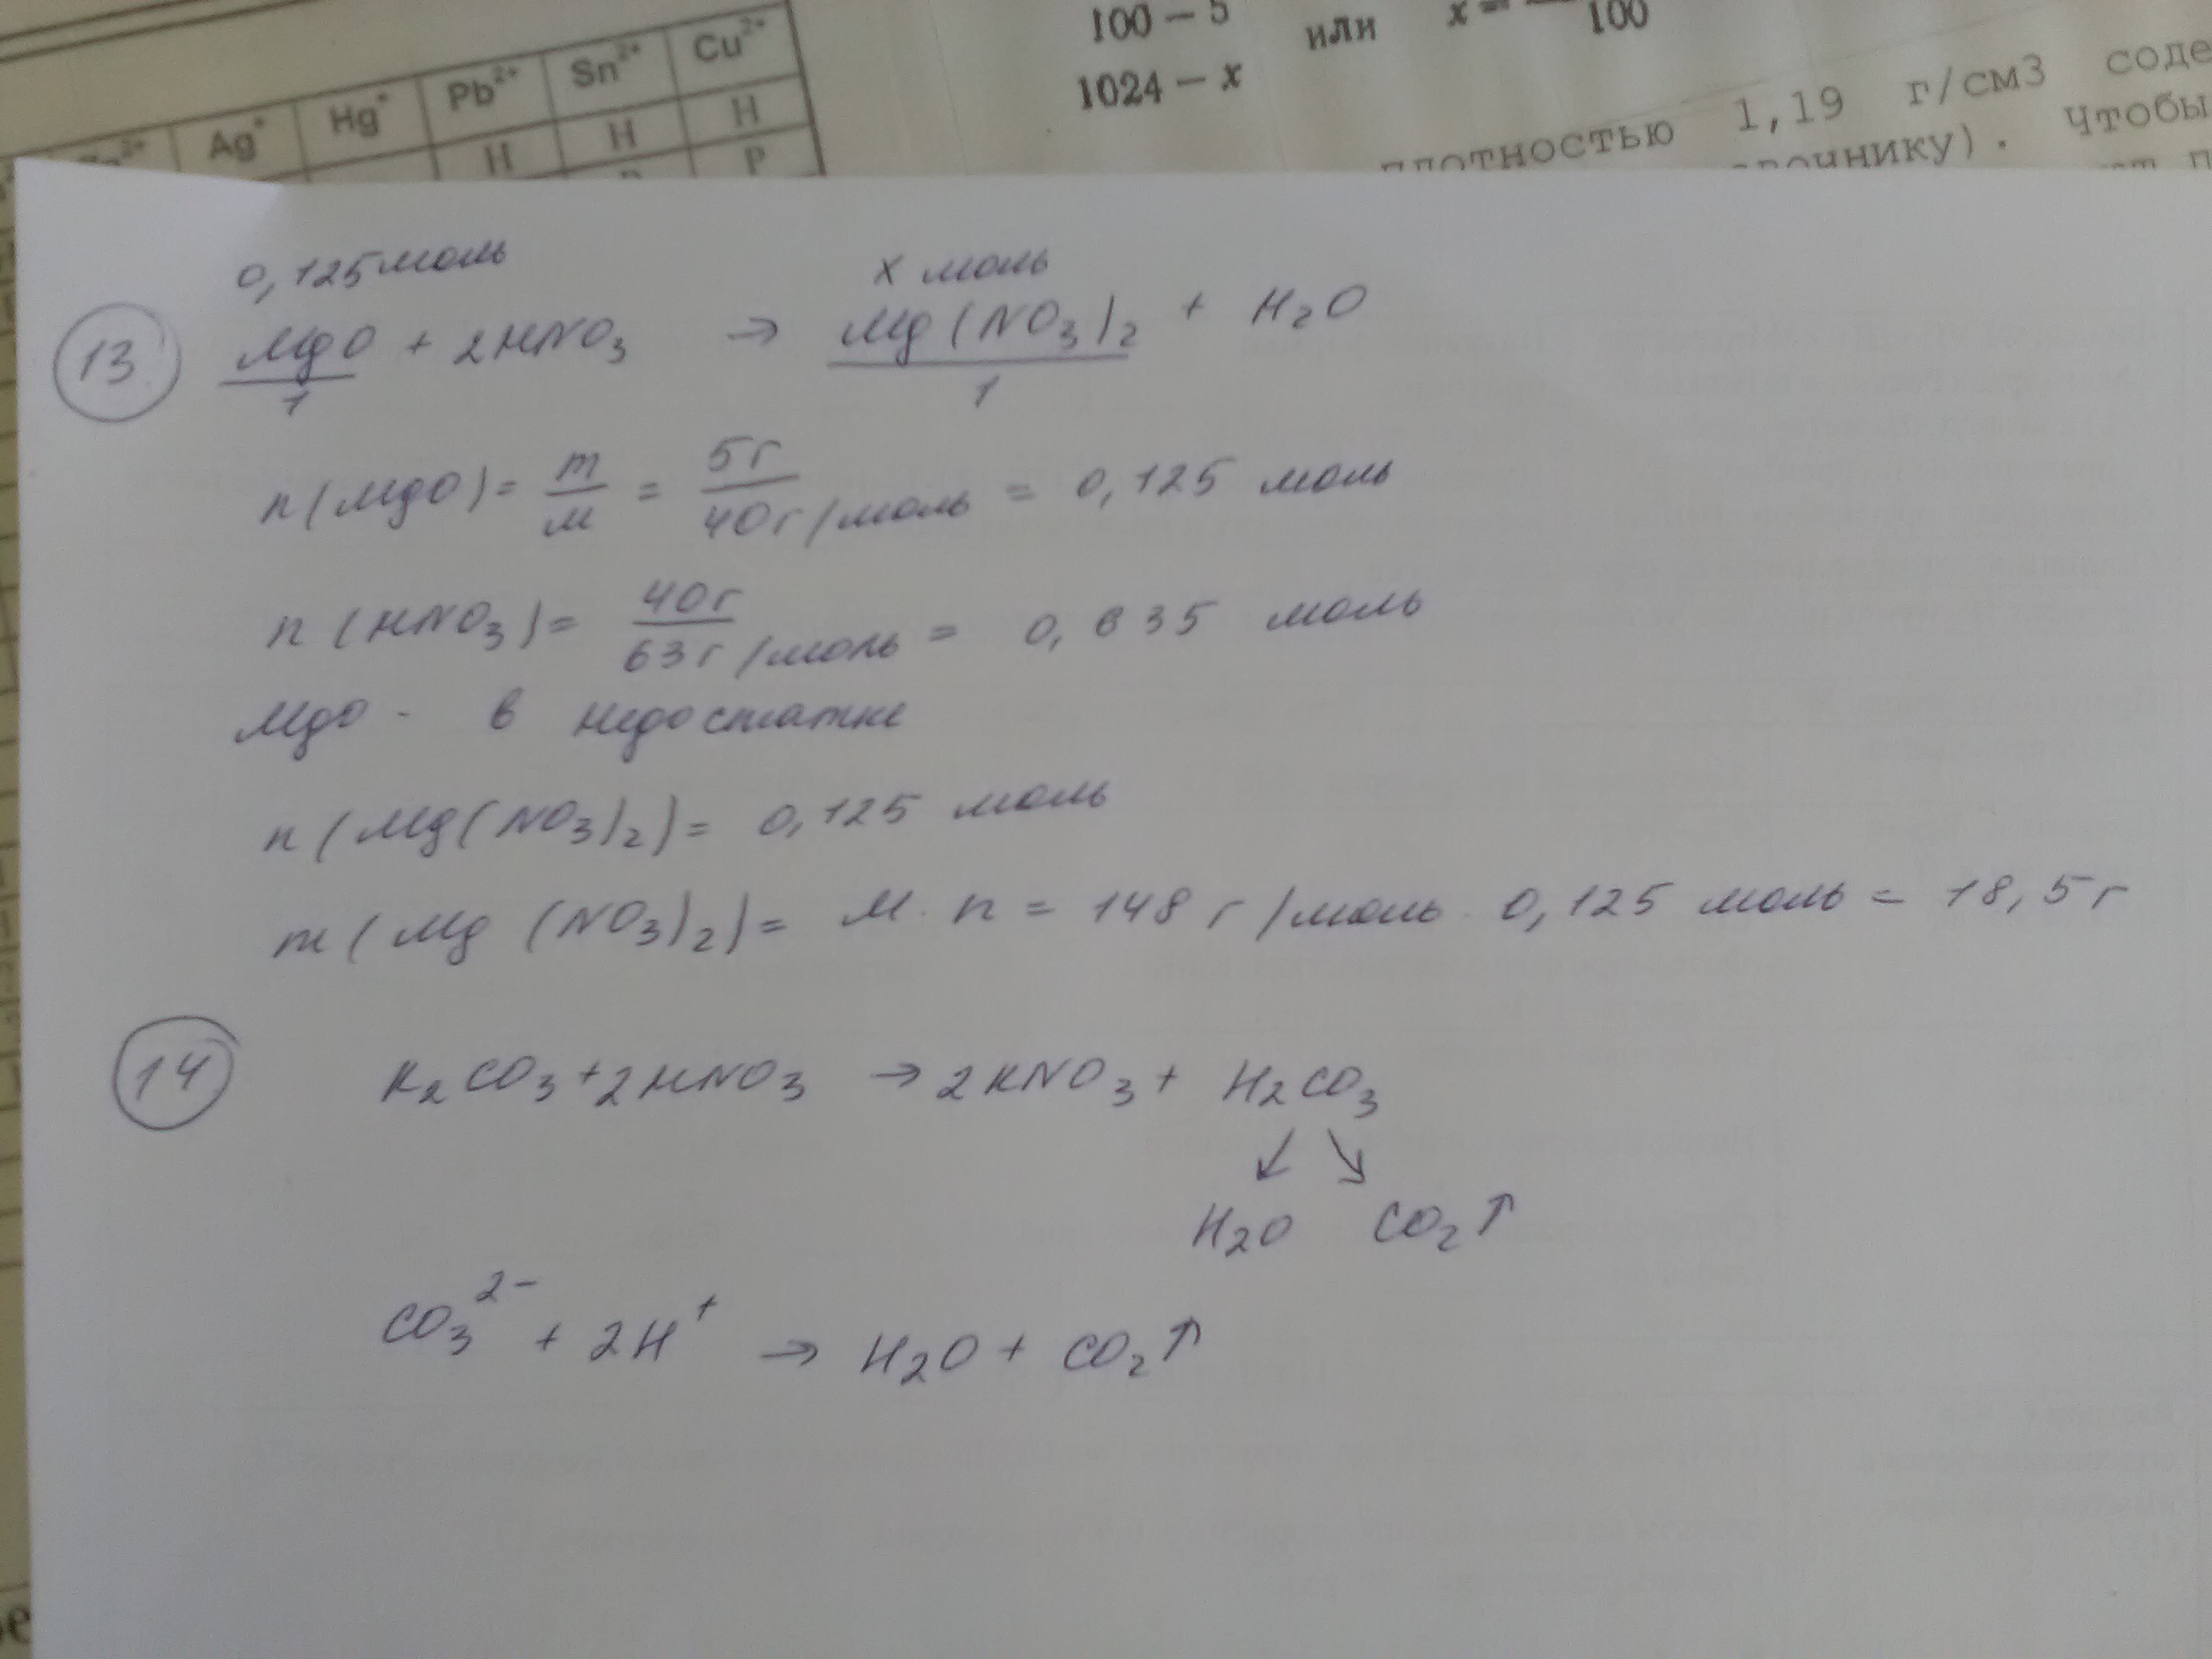 Ag⁺ Hg⁺ Pb²⁺ Sn²⁺ Cu²⁺
Н Н Н
Р
100 – 5
или x =
100
1024 – x
плотностью 1,19 г/см3
Чтобы
0,125 моль x моль
13 MgO + 2HNO₃ → Mg(NO₃)₂ + H₂O
1 1
n(MgO) = m/M = 5г/40г/моль = 0,125 моль
n(HNO₃) = 40г/63г/моль = 0,635 моль
MgO - в недостатке
n(Mg(NO₃)₂) = 0,125 моль
m(Mg(NO₃)₂) = M · n = 148 г/моль · 0,125 моль = 18,5 г
14 K₂CO₃ + 2HNO₃ → 2KNO₃ + H₂CO₃
↙ ↘
H₂O CO₂↑
CO₃²⁻ + 2H⁺ → H₂O + CO₂↑